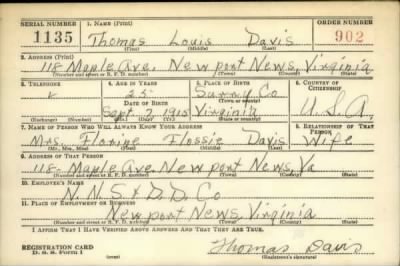 SERIAL NUMBER 1. NAME (Print) ORDER NUMBER
1135 Thomas Louis Davis 902
(First) (Middle) (Last)
2. ADDRESS (Print)
118 Maple Ave. Newport News, Virginia
(Number and street or R. F. D. number) (Town) (County) (State)
3. TELEPHONE 4. AGE IN YEARS 5. PLACE OF BIRTH 6. COUNTRY OF CITIZENSHIP
25 Surry Co
DATE OF BIRTH (Town or county)
Sept. 7 1915 Virginia U.S.A.
(Exchange) (Number) (Mo.) (Day) (Yr.) (State or country)
7. NAME OF PERSON WHO WILL ALWAYS KNOW YOUR ADDRESS 8. RELATIONSHIP OF THAT PERSON
Mrs. Florine Flossie Davis Wife
(Mr., Mrs., Miss) (First) (Middle) (Last)
9. ADDRESS OF THAT PERSON
118- Maple Ave. Newport News, Va
(Number and street or R. F. D. number) (Town) (County) (State)
10. EMPLOYER'S NAME
N. N. S. & D. D. Co
11. PLACE OF EMPLOYMENT OR BUSINESS
Newport News, Virginia
(Number and street or R. F. D. number) (Town) (County) (State)
I AFFIRM THAT I HAVE VERIFIED ABOVE ANSWERS AND THAT THEY ARE TRUE.
REGISTRATION CARD
D. S. S. Form 1
Thomas Davis
(Registrant's signature)